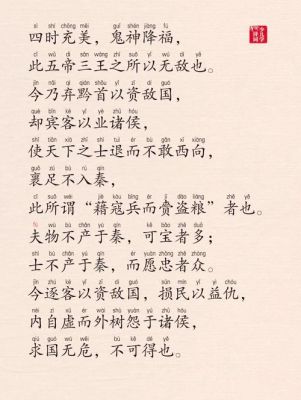 sì shí chōng měi guǐ shén jiàng fú
四时充美，鬼神降福，
cǐ wǔ dì sān wáng zhī suǒ yǐ wú dí yě
此五帝三王之所以无敌也。
jīn nǎi qì qián shǒu yǐ zī dí guó
今乃弃黔首以资敌国，
què bīn kè yǐ yè zhū hóu
却宾客以业诸侯，
shǐ tiān xià zhī shì tuì ér bù gǎn xī xiàng
使天下之士退而不敢西向，
guǒ zú bù rù qín
裹足不入秦，
cǐ suǒ wèi jiè kòu bīng ér jī dào liáng zhě yě
此所谓“藉寇兵而赍盗粮”者也。
fú wù bù chǎn yú qín kě bǎo zhě duō
夫物不产于秦，可宝者多；
shì bù chǎn yú qín ér yuàn zhōng zhě zhòng
士不产于秦，而愿忠者众。
jīn zhú kè yǐ zī dí guó sǔn mín yǐ yì chóu
今逐客以资敌国，损民以益仇，
nèi zì xū ér wài shù yuàn yú zhū hóu
内自虚而外树怨于诸侯，
qiú guó wú wēi bù kě dé yě
求国无危，不可得也。